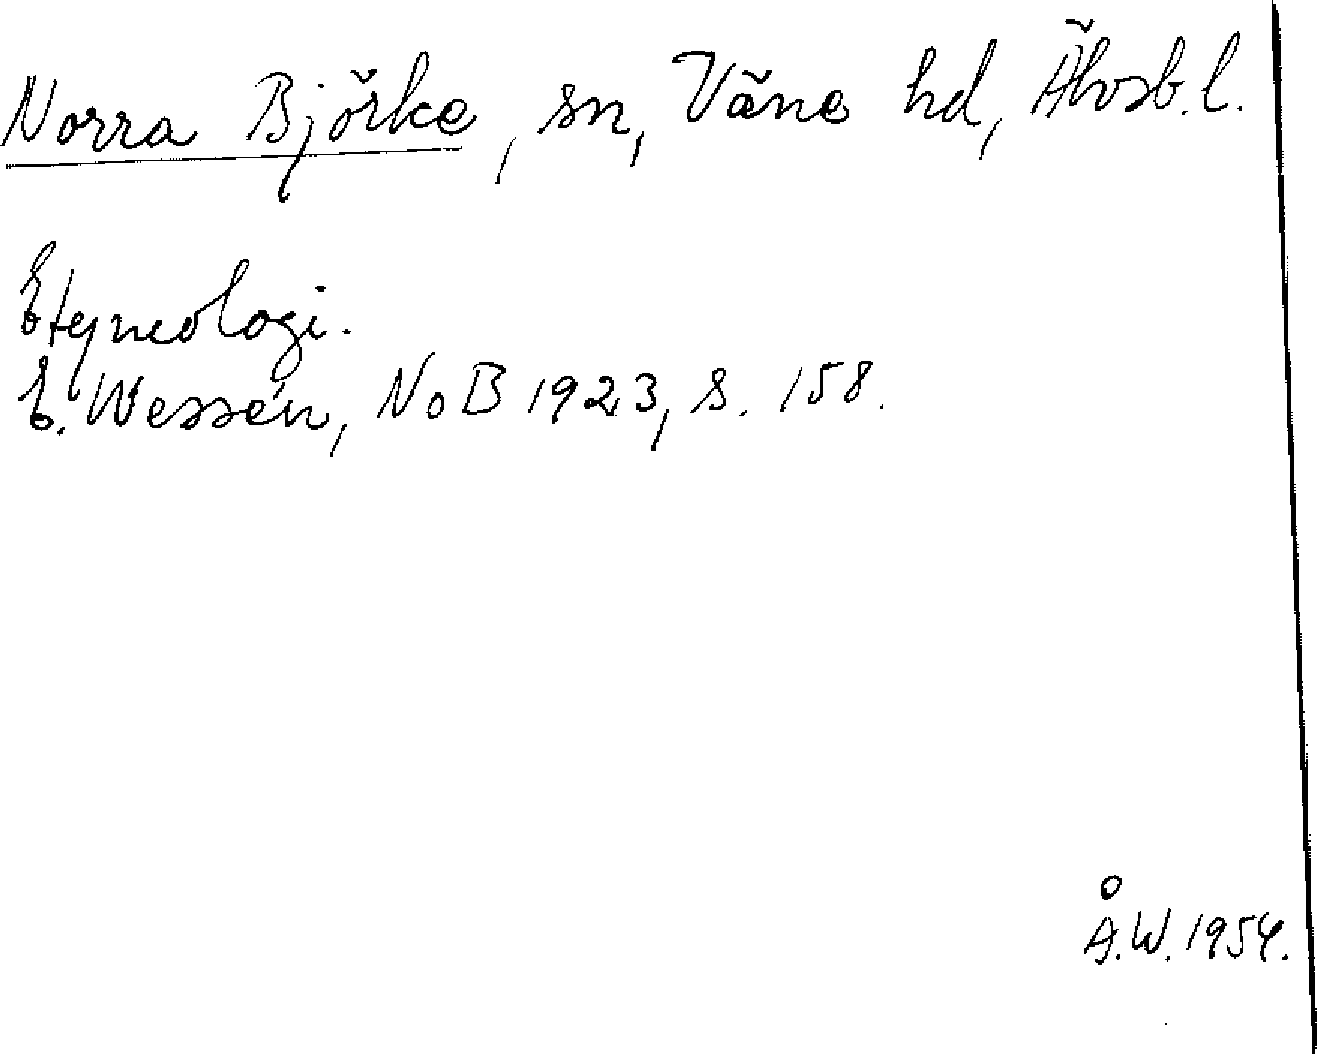 Norra Björke, sn, Väne hd, Älvsb. l.
Etymologi.
E. Wessén, NoB 1923, s. 158.
Å.W. 1954.